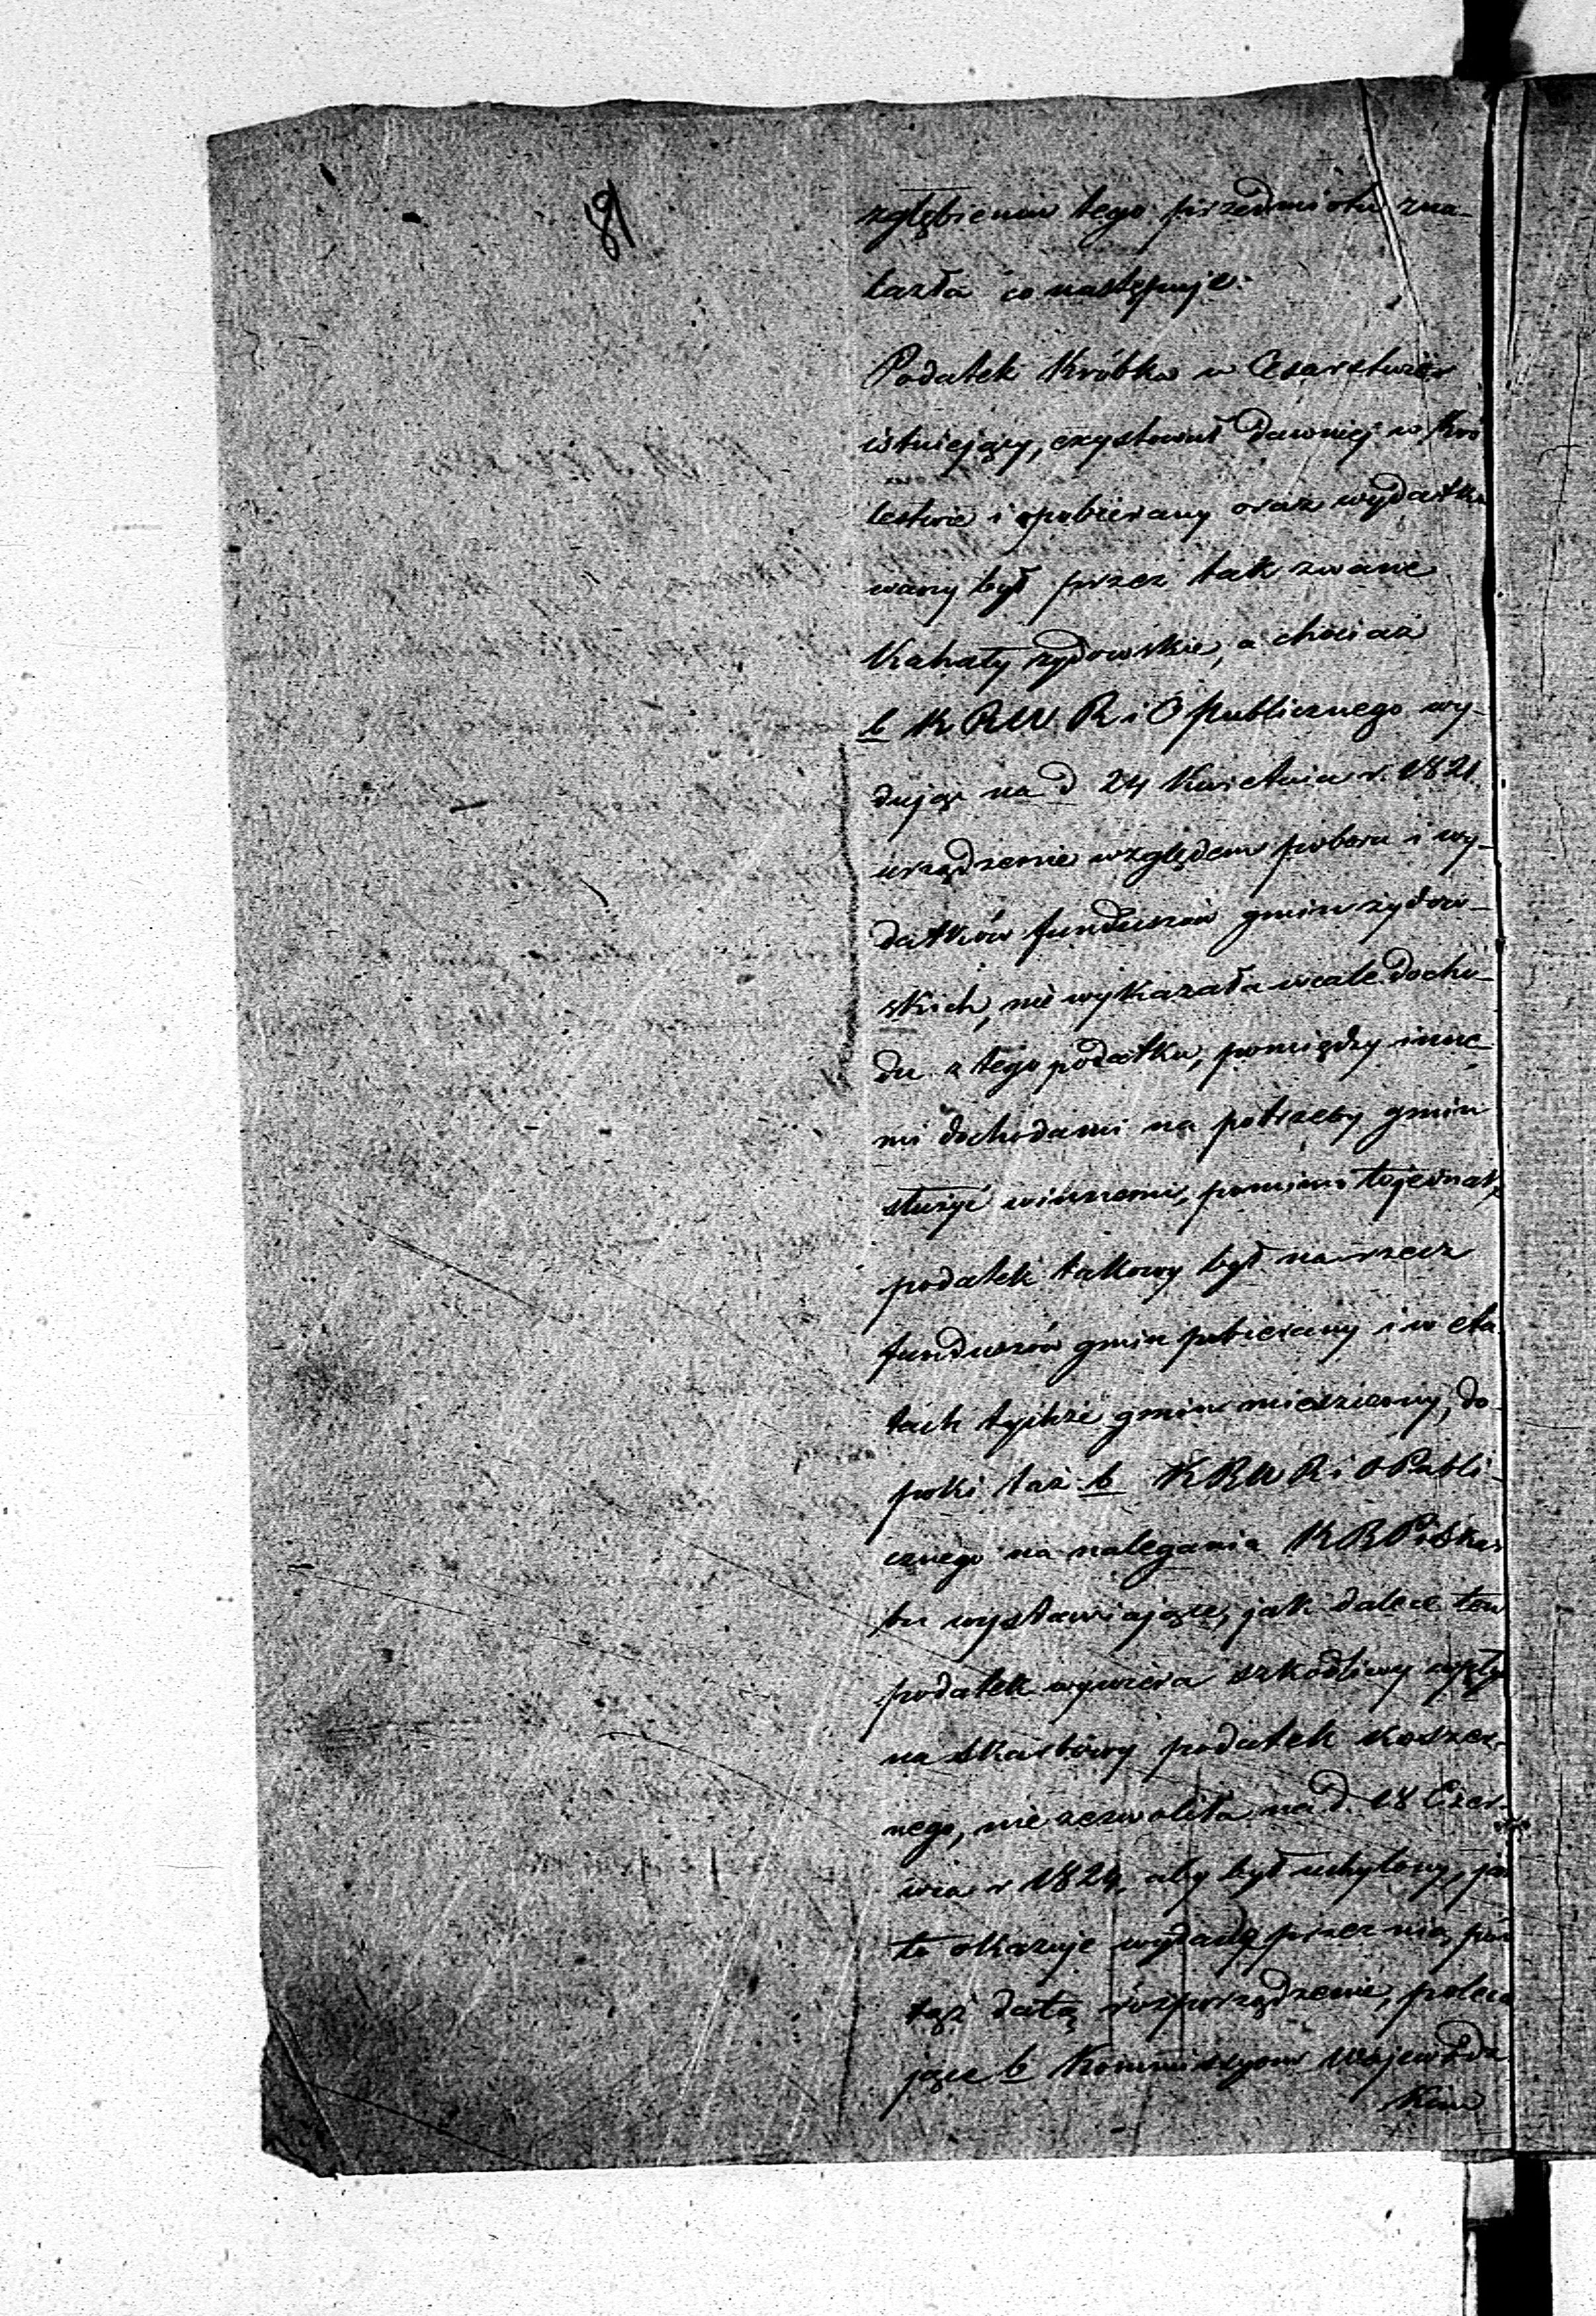 181
zgłębieniu tego przedmiotu zna-
lazła co następuje.
Podatek Króbka w Cesarstwie
istniejący, exystował dawniej w Kró
lestwie i pobierany oraz wydatko
wany był przez tak zwane
Kahały żydowskie, a chociaż
b KRWR i O publicznego wy-
dając na d 24 Kwietnia r. 1821
urządzenie względem poboru i wy-
datków funduszów gmin żydow-
skich, nie wykazała wcale docho-
du z tego podatku, pomiędzy inne-
mi dochodami na potrzeby gmin
służyć winnemi, pomimo to jednak
podatek takowy był na rzecz
funduszów gmin pobierany i w eta
tach tychże gmin mieszczony, do-
póki taż b KRWR i O Publi-
cznego na nalegania KRP i Skar
bu wystawiające, jak dalece ten
podatek wywiera szkodliwy wpły
na skarbowy podatek koszer-
nego, nie zezwoliła na d. 18 Czer-
wca r 1824, aby był uchylony, jak
to okazuje wydane przez nią pod
tąż datą rozporządzenie, poleca
jące b Kommissyom Wojewódz
kim